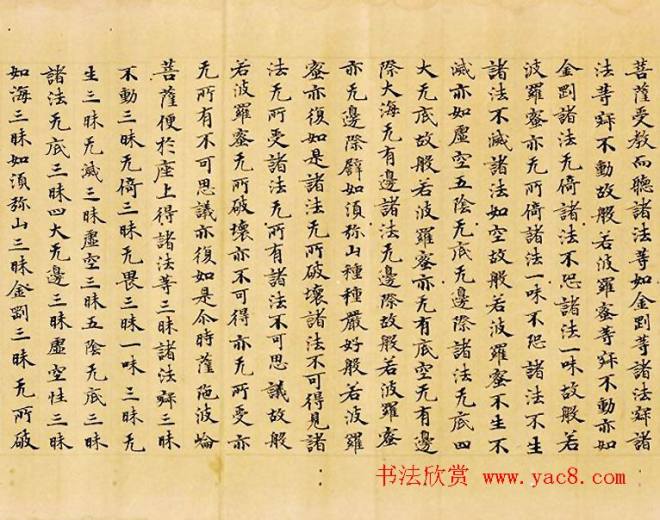 菩薩受教而聽諸法等如金剛等諸法寂諸
法等寂不動故般若波羅蜜等寂不動亦如
金剛諸法无倚諸法不恐諸法一味故般若
波羅蜜亦无所倚諸法一味不恐諸法不生
諸法不滅諸法如空故般若波羅蜜不生不
滅亦如虛空五陰无底无邊際諸法无底四
大无底故般若波羅蜜亦无有底空无有邊
際大海无有邊諸法无邊際故般若波羅蜜
亦无邊際辟如須弥山種種嚴好般若波羅
蜜亦復如是諸法无所破壞諸法不可得見諸
法无所受諸法无所有諸法不可思議故般
若波羅蜜无所破壞亦不可得亦无所受亦
无所有不可思議亦復如是尒時薩陁波崘
菩薩便於座上得諸法等三昧諸法寂三昧
不動三昧无倚三昧无畏三昧一味三昧无
生三昧无滅三昧虛空三昧五陰无底三昧
諸法无底三昧四大无邊三昧虛空性三昧
如海三昧如須弥山三昧金剛三昧无所破
书法欣赏 www.yac8.com